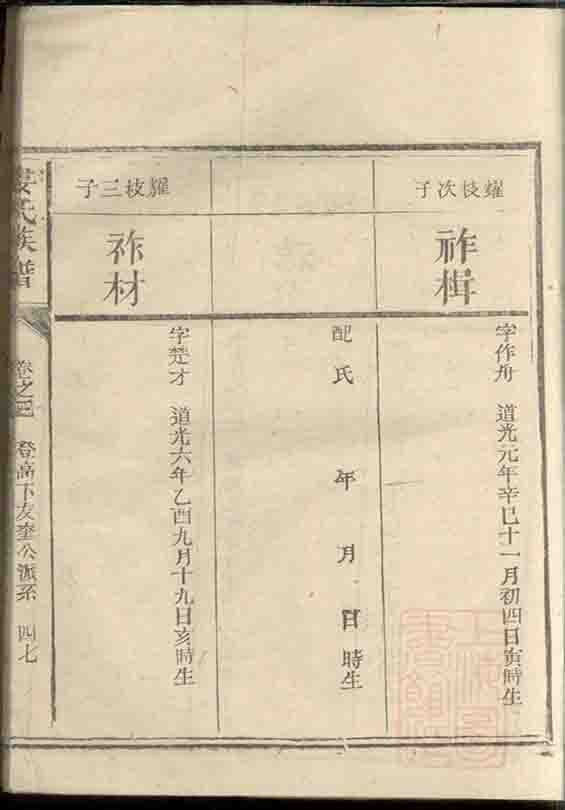 耀枝次子
祚楫
字作舟 道光元年辛巳十一月初四日寅時生
配氏 年 月 日 時生
耀枝三子
祚材
字楚才 道光六年乙酉九月十九日亥時生
氏族譜
卷之 登高下友奎公派系 四七
上海圖書館藏